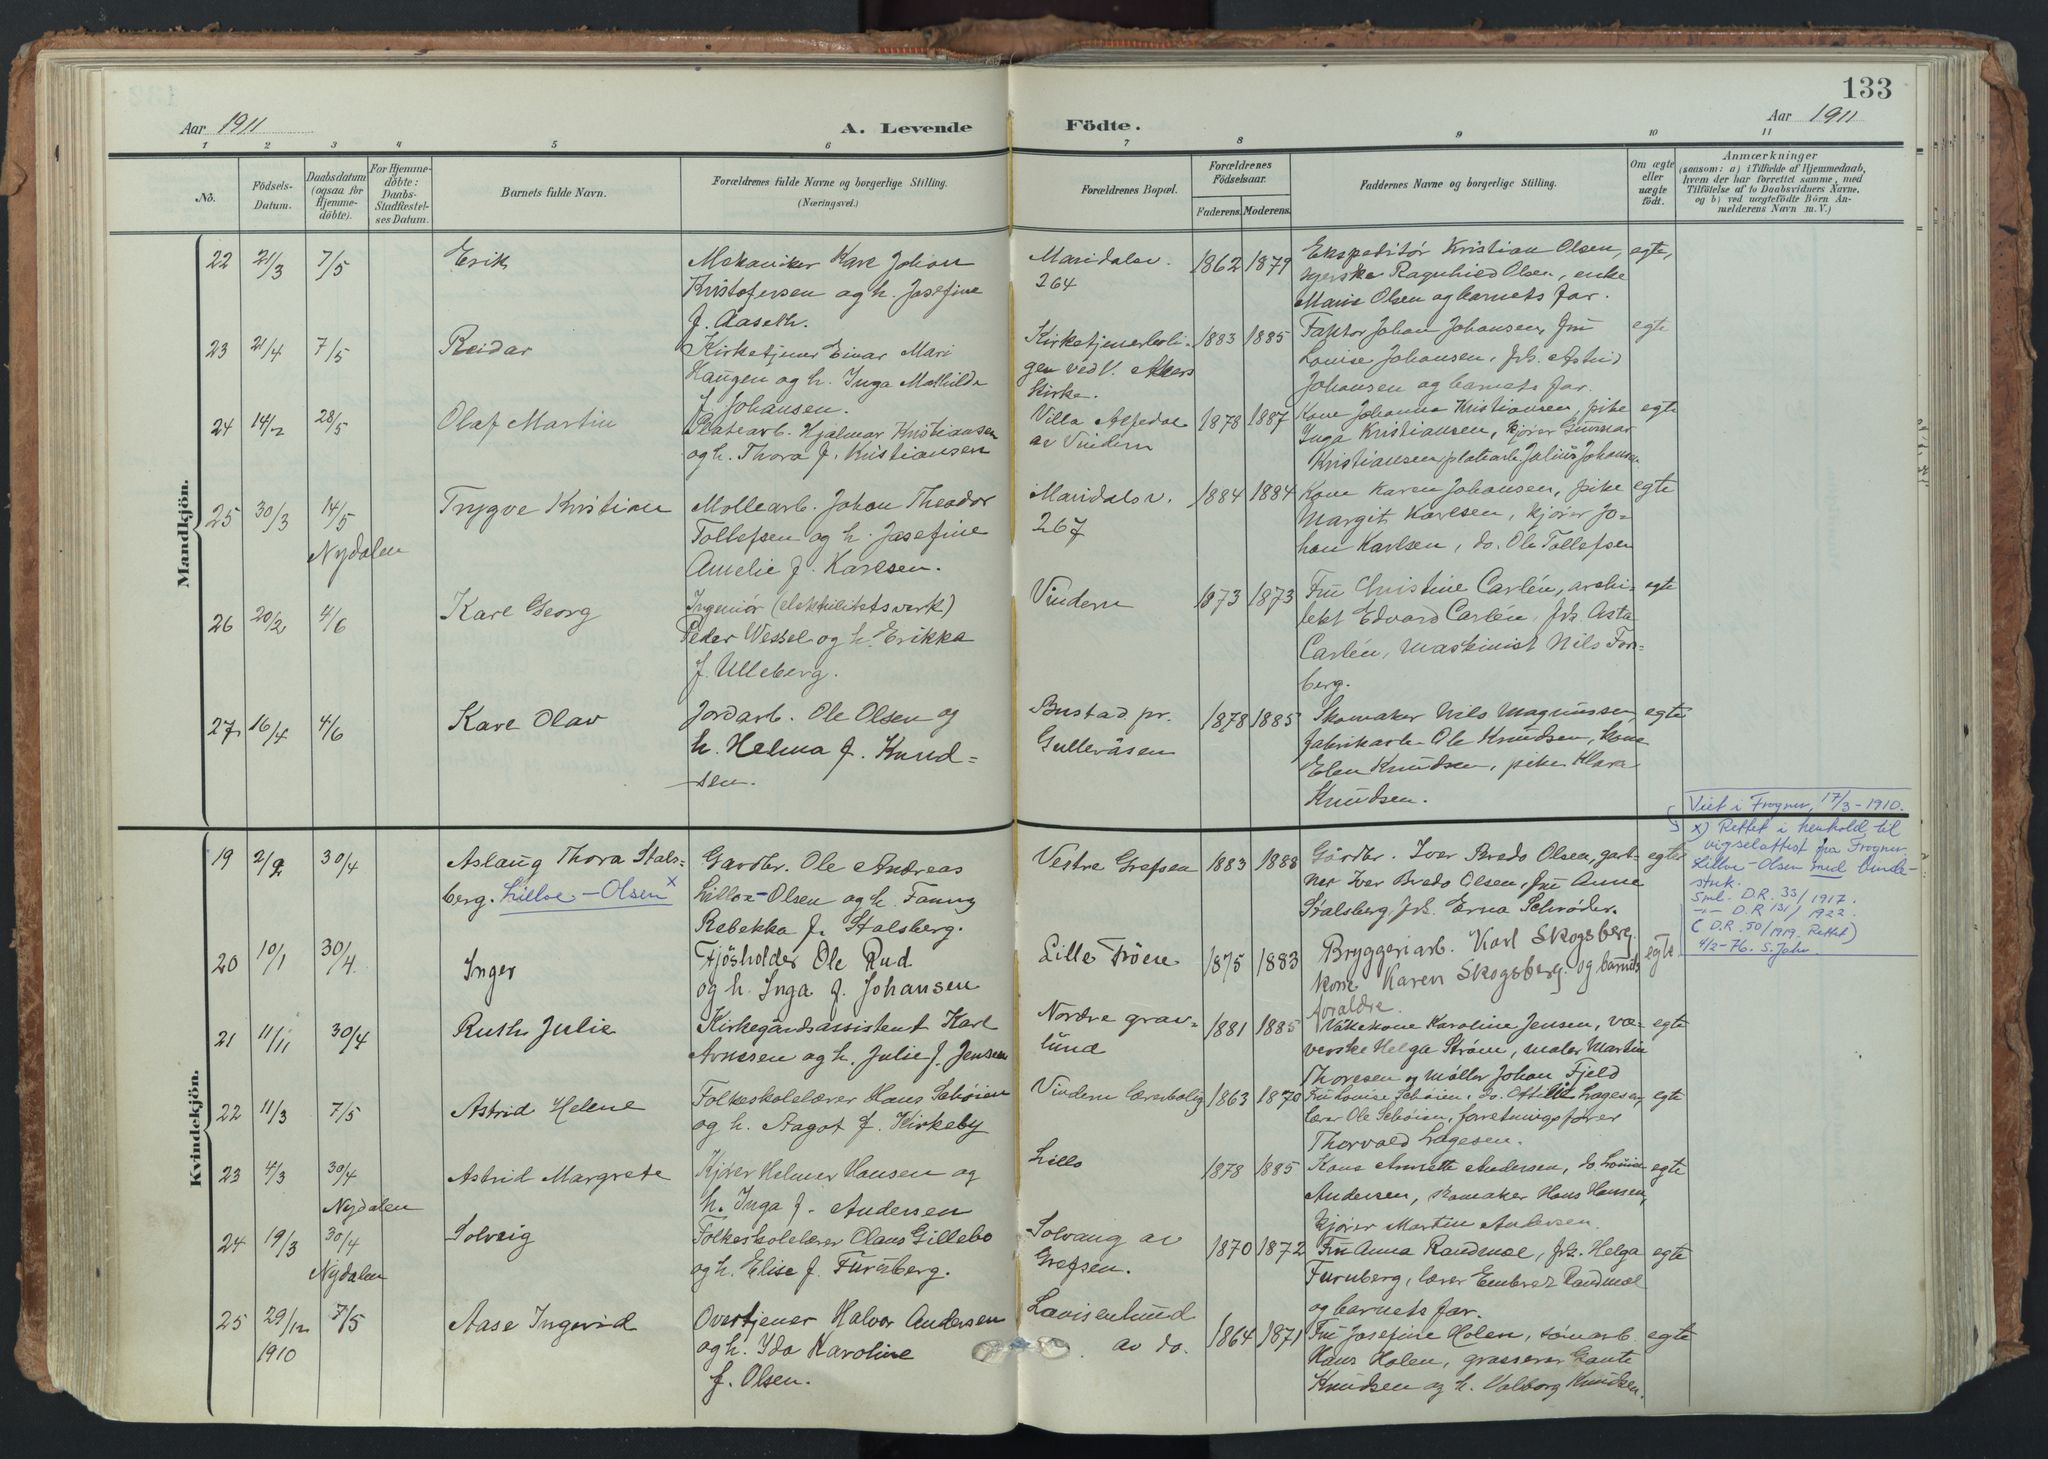 133
Aar 1911
A. Levende
Födte.
Aar 1911
1 2 3 4 5 6 7 8 9 10 11
No.
Födsels-
Datum.
Daabsdatum
(ogsaa for
Hjemme-
döbte).
For Hjemme-
döbte:
Daabs-
Stadfæstel-
ses Datum.
Barnets fulde Navn.
Forældrenes fulde Navne og borgerlige Stilling.
(Næringsvei.)
Forældrenes Bopæl.
Forældrenes
Födselsaar.
Faderens. Moderens.
Faddernes Navne og borgerlige Stilling.
Om ægte
eller
uægte
födt.
Anmærkninger
(saasom: a) i Tilfælde af Hjemmedaab,
hvem der har forrettet samme, med
Tilföielse af to Daabsvidners Navne,
og b) ved uægtefödte Börn An-
melderens Navn m. V.)
Mandkjön.
22 21/3 7/5 Erik
Mekaniker Karl Johan
Kristofersen og h. Josefine
f. Aaseth.
Maridalsv.
264
1862 1879
Ekspeditör Kristian Olsen,
syerske Ragnhild Olsen, enke
Marie Olsen og barnets far.
egte,
23 21/4 7/5 Reidar
Kirketjener Einar Mari
Haugen og h. Inga Mathilde
f. Johansen.
Kirketjenerboli-
gen ved V. Akers
kirke.
1883 1885
Faktor Johan Johansen, fru
Louise Johansen, frk. Astrid
Johansen og barnets far.
egte
24 14/2 28/5 Olaf Martin
Platearb. Hjalmar Kristiansen
og h. Thora f. Kristiansen
Villa Alfedal
av Vindern
1878 1887
Kone Johanna Kristiansen, pike
Inga Kristiansen, kjører Gunnar
Kristiansen, platearb. Julius Johansen.
egte
25 30/3 14/5
Nydalen
Trygve Kristian
Mollearb. Johan Theodor
Tollefsen og h. Josefine
Amelie f. Karlsen.
Maridalsv.
267
1884 1884
Kone Karen Johansen, pike
Margit Karlsen, kjører Jo-
han Karlsen, do. Ole Tollefsen
egte
26 20/2 4/6 Karl Georg
Ingeniör (elektricitetsverk)
Peder Wessel og h. Erikka
f. Ulleberg.
Vindern
1873 1873
Fru Christine Carlén, arki-
tekt Edvard Carlén, frk. Asta
Carlén, maskinist Nils Fors-
berg.
egte
27 16/4 4/6 Karl Olav
Jordarb. Ole Olsen og
h. Helma f. Knud-
sen.
Bustad pr.
Gulleråsen
1878 1885
Skomaker Nils Magnussen,
fabrikarb. Ole Knudsen, kone
Elen Knudsen, pike Klara
Knudsen.
egte
Kvindekjön.
19 2/2 30/4
Aslaug Thora Stals-
berg. Lilloe-Olsen x
Gardbr. Ole Andreas
Lilloe-Olsen og h. Fanny
Rebekka f. Stalsberg.
Vestre Grefsen
1883 1888
Gårdbr. Iver Bredo Olsen, gart-
ner Iver Bredo Olsen, fru Anne
Stalsberg, frk. Erna Schrøder.
egte
Viet i Frogner, 17/3-1910.
x) Rettet i henhold til
vigselattest fra Frogner.
Lilloe-Olsen med binde-
strek.
Sml. D.R. 33/1917.
-"- D.R. 131/1922.
(D.R. 50/1919. Rettet)
4/2-76. S. Jahr.
20 10/1 30/4 Inger
Fjösholder Ole Rud
og h. Inga f. Johansen
Lille Frøen
1875 1883
Bryggeriarb. Karl Skogsberg.
kone Karen Skogsberg. og barnets
foraldre.
egte
21 11/11 30/4 Ruth Julie
Kirkegårdsassistent Karl
Arnesen og h. Julie f. Jensen
Nordre grav-
lund
1881 1885
Våkekone Karoline Jensen, væ-
verske Helga Strøm, maler Martin
Thoresen og møller Johan Fjeld
egte
22 11/3 7/5 Astrid Helene
Folkeskolelærer Hans Schøien
og h. Aagot f. Kirkeby
Vindern lærerbolig
1863 1870
Fru Louise Schøien, do. Ottilie Lagesen,
lærer Ole Schøien, forretningsfører
Thorvald Lagesen.
egte
23 4/3 30/4
Nydalen
Astrid Margrete
Kjører Helmer Hansen og
h. Inga f. Andersen
Lillo
1878 1885
Kone Annette Andersen, do. Louise
Andersen, skomaker Hans Hansen,
kjører Martin Andersen.
egte
24 19/3 30/4
Nydalen
Solveig
Folkeskolelærer Olaus Gillebo
og h. Elise f. Furuberg.
Solvang av
Grefsen.
1870 1872
Fru Anna Randmæl, frk. Helga
Furuberg, lærer Embret Randmæl
og barnets far.
egte
25 29/12
1910
7/5 Aase Ingerid
Overtjener Halvor Andersen
og h. Ida Karoline
f. Olsen.
Lovisenlund
av do.
1864 1871
Fru Josefine Holen, tømarb.
Hans Holen, grosserer Gaute
Knudsen og h. Valborg Knudsen.
egte